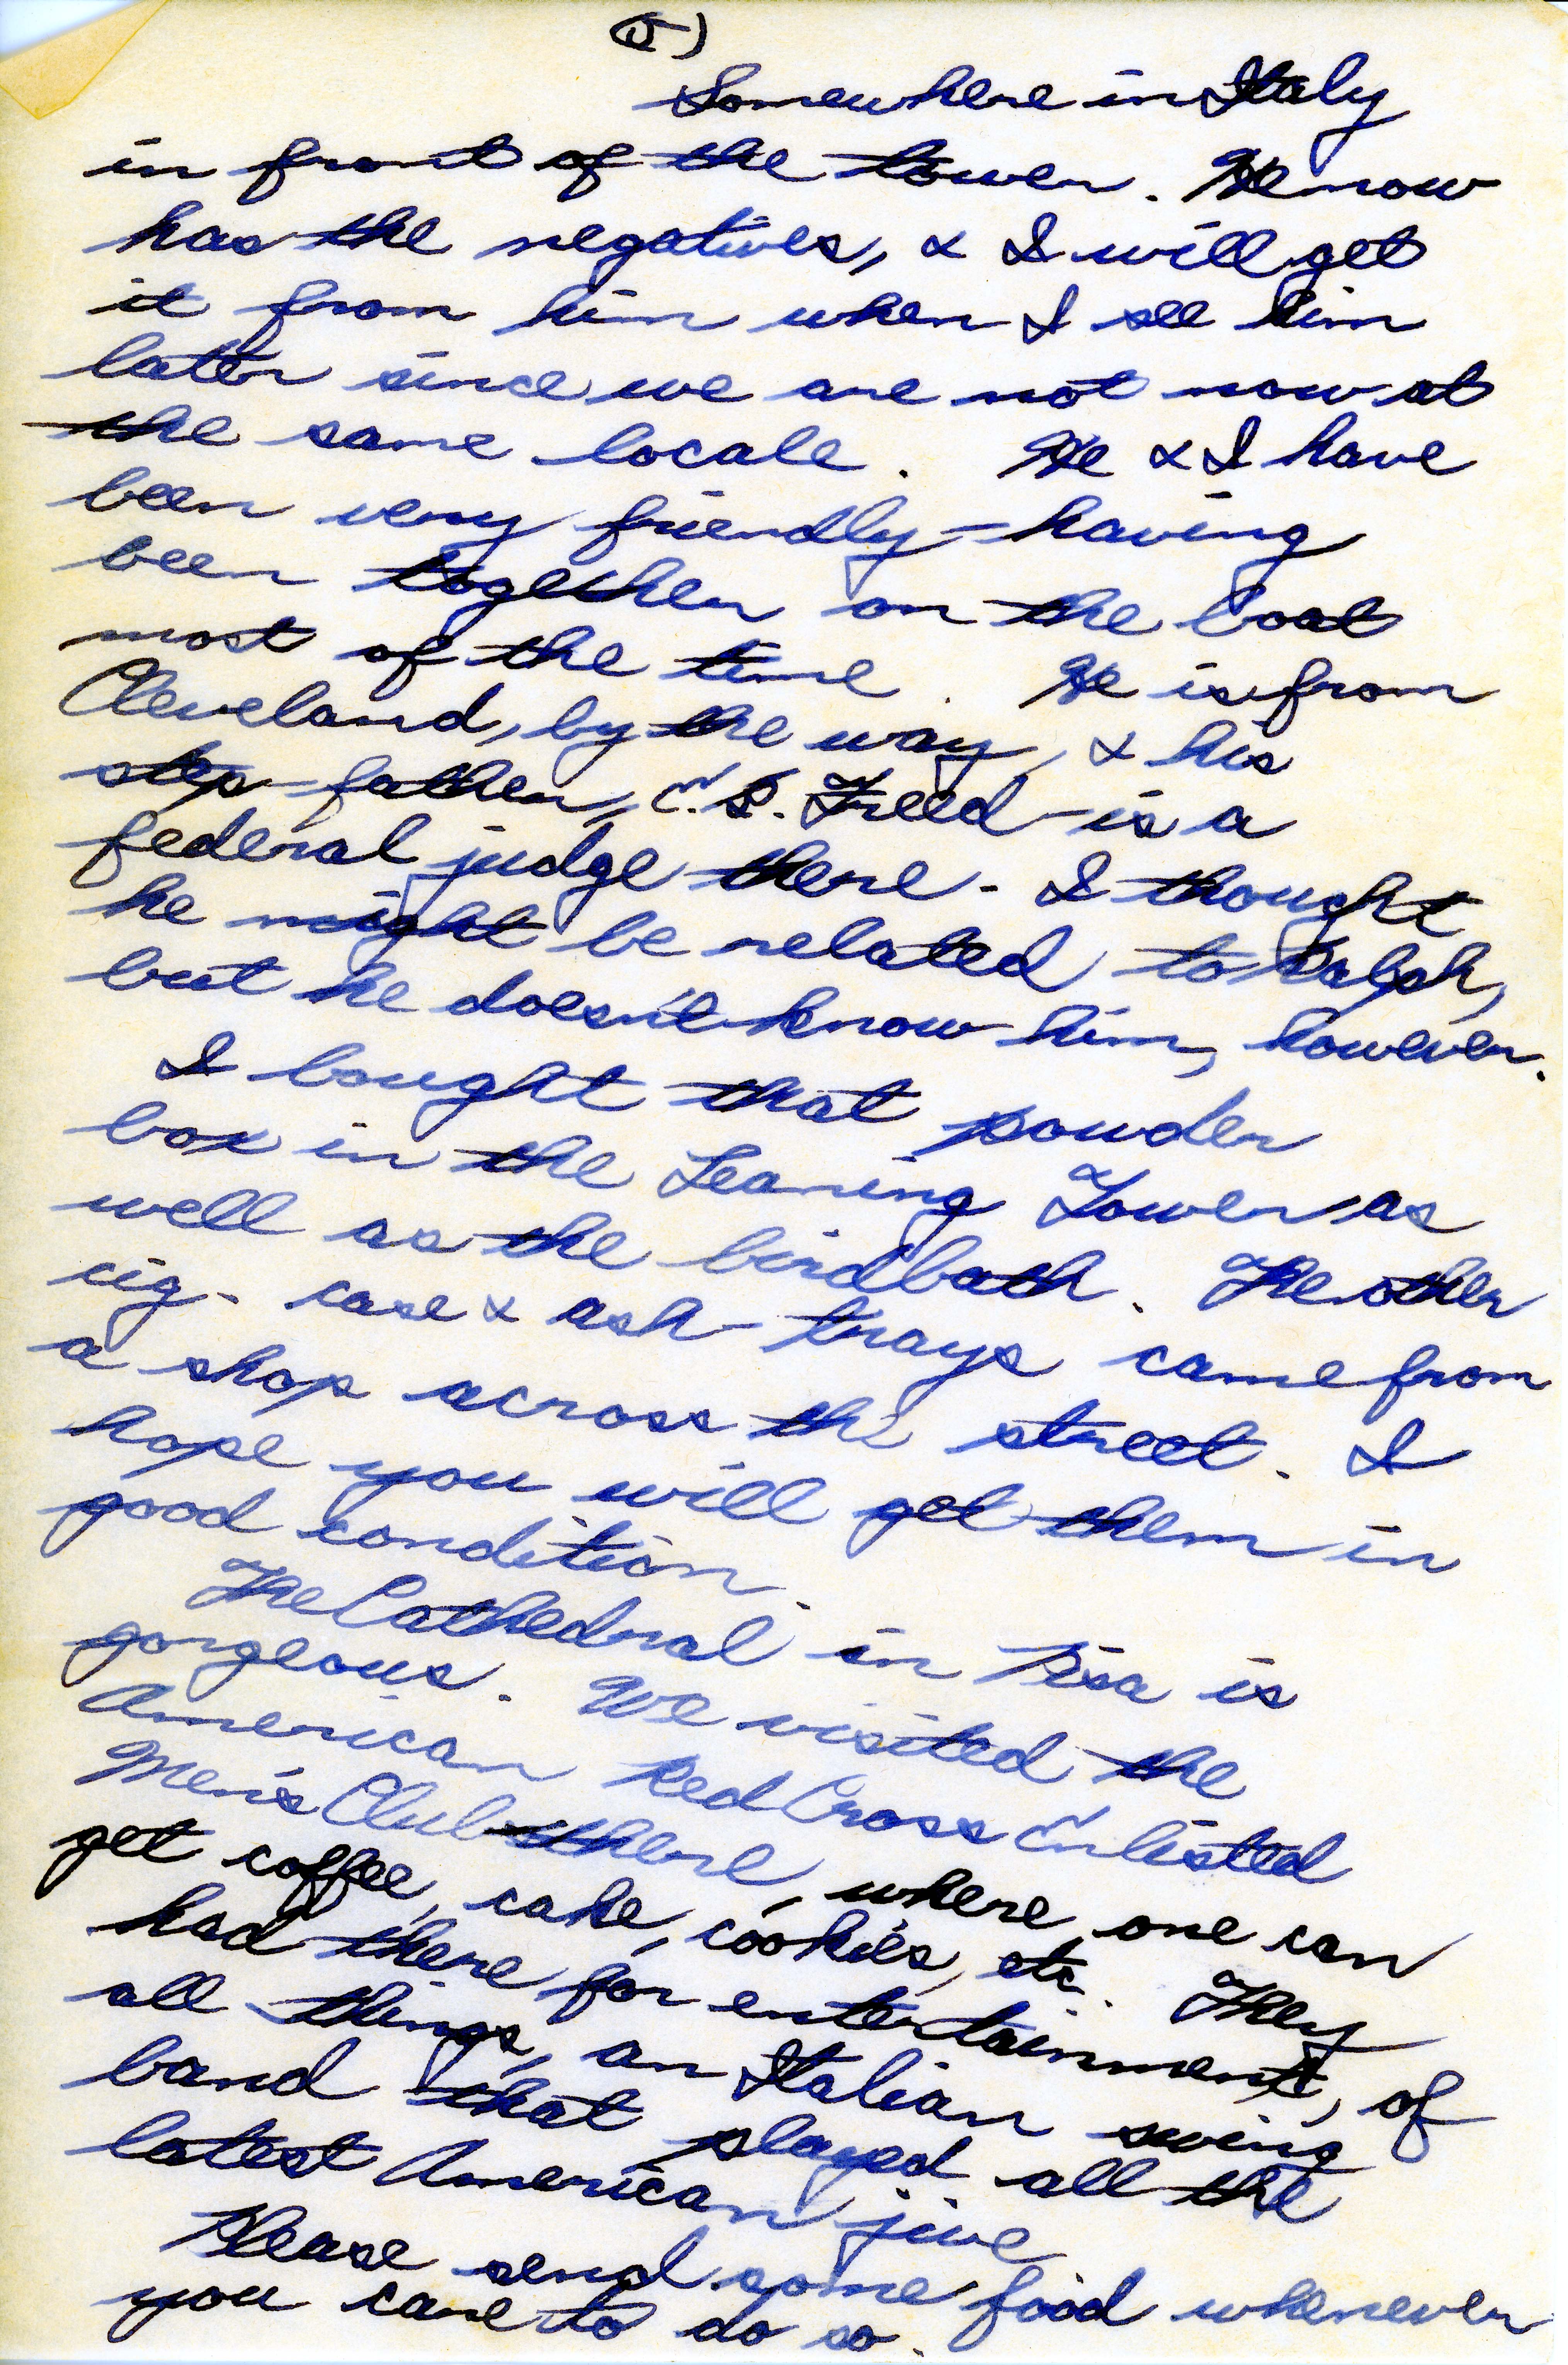 5)
Somewhere in Italy
in front of the tower. He now
has the negatives, & I will get
it from him when I see him
later since we are not now at
the same locale. He & I have
been very friendly - having
been together on the boat
most of the time. He is from
Cleveland, by the way, & his
step-father, E. S. Freed - is a
federal judge there. I thought
he might be related to Ralph,
but he doesn't know him, however.
I bought that powder
box in the Leaning Tower as
well as the birdbath. The other
cig. case & ash-trays came from
a shop across the street. I
hope you will get them in
good condition.
The Cathedral in Pisa is
gorgeous. We visited the
American Red Cross Enlisted
Men's Club there, where one can
get coffee, cake, cookies, etc. They
had there for entertainment, of
all things, an Italian swing
band that played all the
latest American jive
Please send some food whenever
you care to do so.